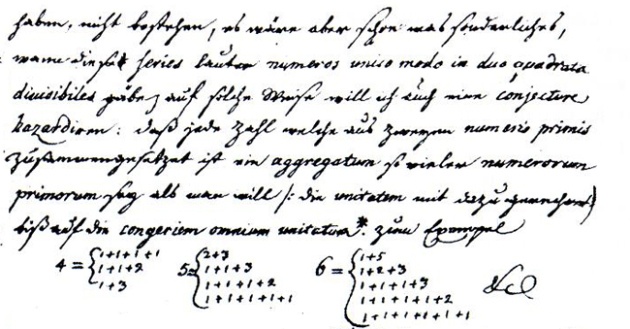 haben, nicht bestehen, es wäre aber schon was sonderliches,
wann diese series lauter numeros unico modo in duo quadrata
divisibiles gäbe, auf solche Weise will ich auch eine conjecture
hazardiren: daß jede Zahl welche aus zweyen numeris primis
zusammengesetzet ist ein aggregatum so vieler numerorum
primorum sey als man will /: die unitatem mit dazu gerechnet)
biß auf die congeriem omnium unitatum*: zum Exempel
4 = { 1+1+1+1 5 = { 2+3 6 = { 1+5
1+1+2 1+1+3 1+2+3
1+3 1+1+1+2 1+1+1+3
1+1+1+1+1 1+1+1+1+2
1+1+1+1+1+1
&c